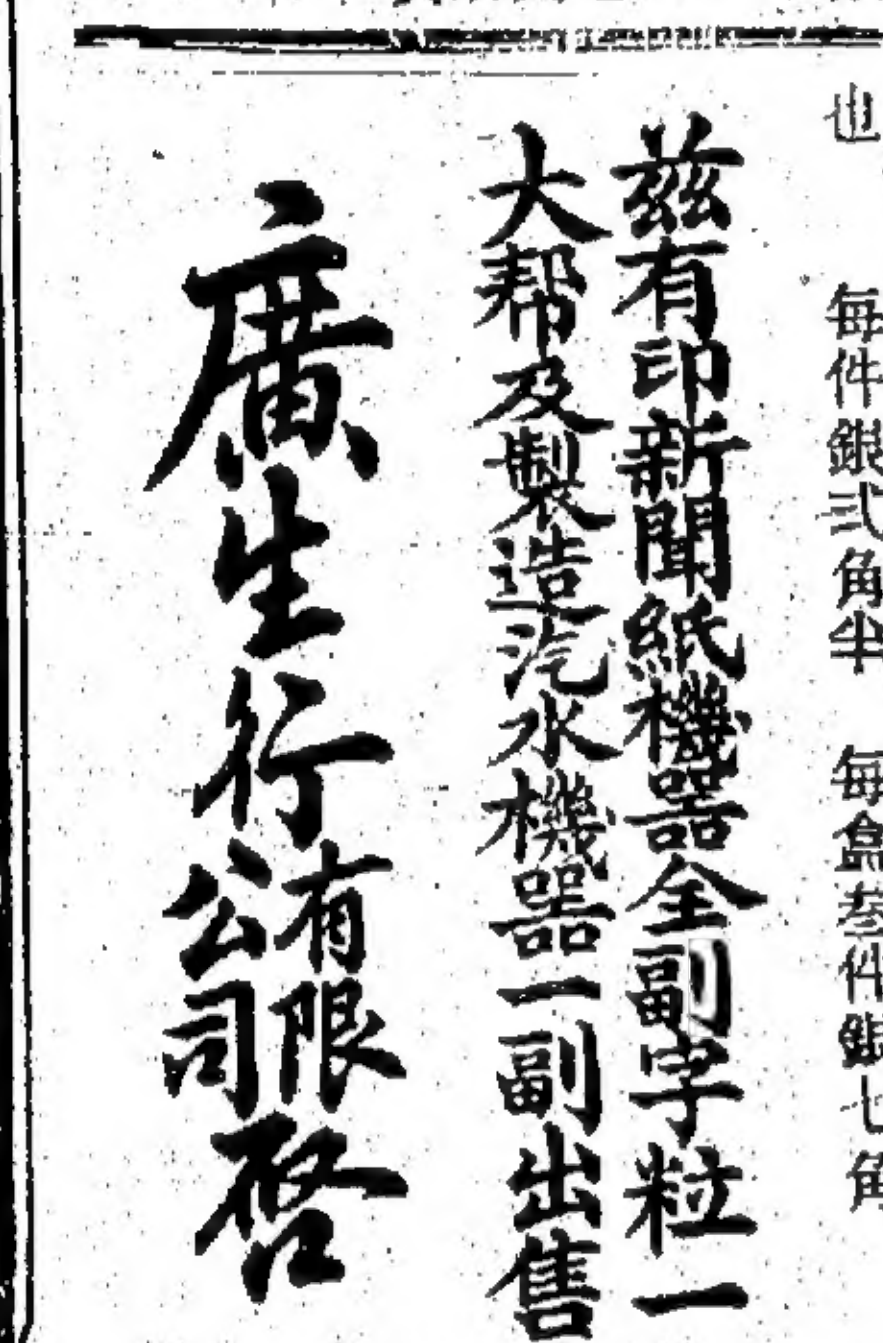 也　每件銀弍角半　每盒叁件銀七角
茲有印新聞紙機器全副字粒一
大帮及製造汽水機器一副出售
廣生行有限公司啓